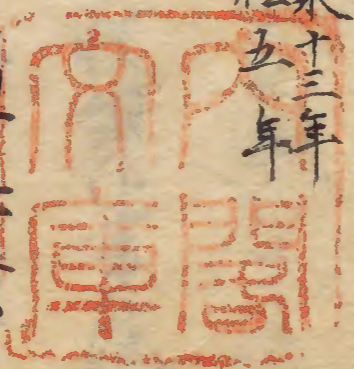 十三年
五年
内閣
文庫